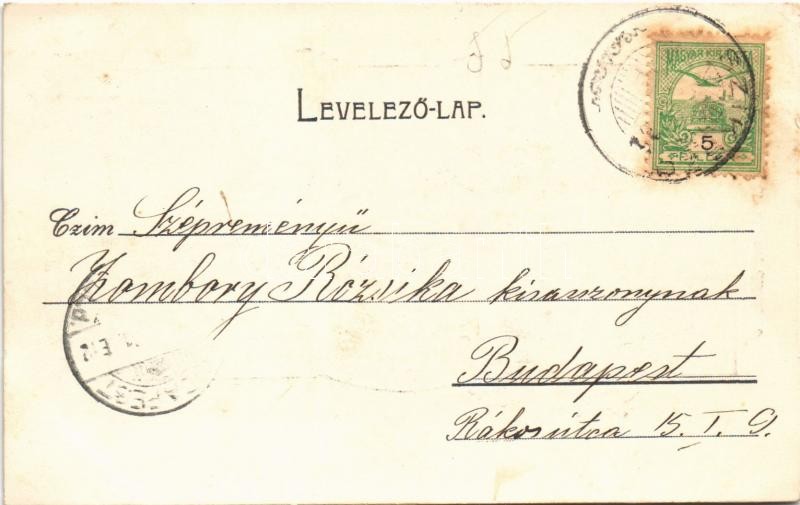 LEVELEZŐ-LAP.
MAGYAR KIR. 
5
Czim Szépreményű
Zombory Rózsika kisasszonynak
Budapest
Rákos útca 15. I. 9.